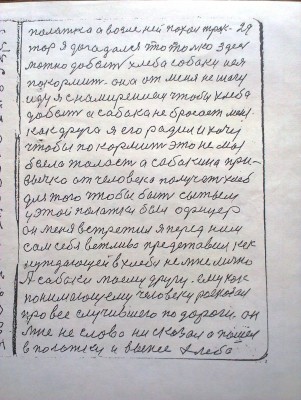 полатка а возле ней похол трак- 29
тор я догадался что толко здес
можно добыть хлеба собаки моя
покормит. она от меня не шагу
иду я с намирением чтобы хлеба
добыть и собака не бросает мен.
как друга я его радил и хочу
чтобы покормит это не моя
была жалост а собакина при-
вычко от человека получат хлеб
для того чтобы быть сытым
у этой полатки был офицер
он меня встретил я перед ним
сам себя вежливо представил, как
нуждающей в хлеби не мне лично
А собаки моему другу. ему как
понимающему человеку росказал
про все случившего по дороги. он
мне не слова ни сказал а пошел
в полатку и вынес хлеба